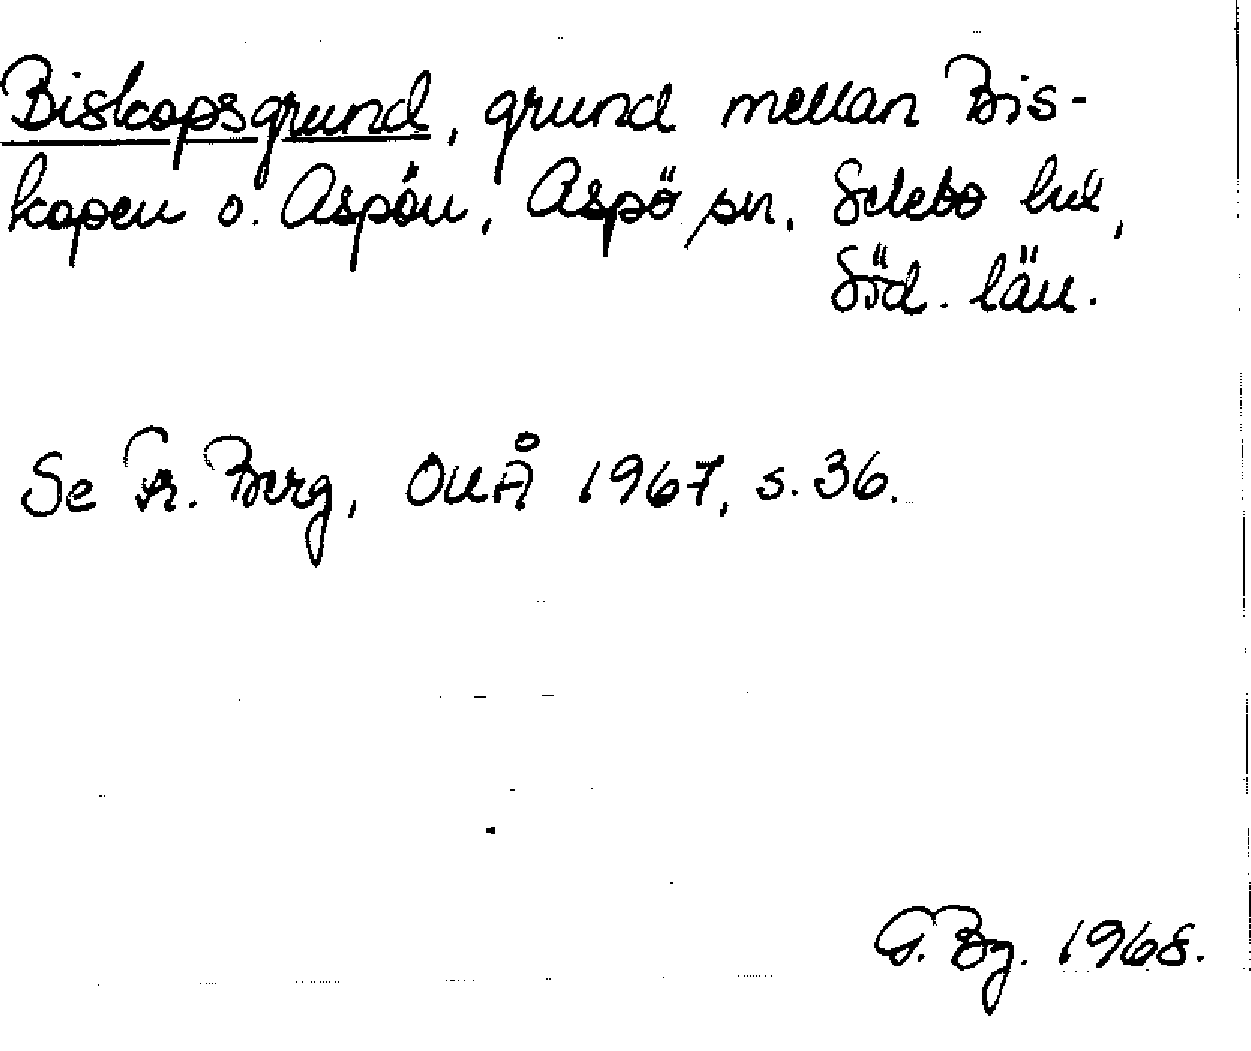 Biskopsgrund, grund mellan Bis-
kopen o. Aspön, Aspö sn, Selebo hd,
Söd. län.
Se Fr. Berg, OUÅ 1967, s. 36.
G. Bg. 1968.